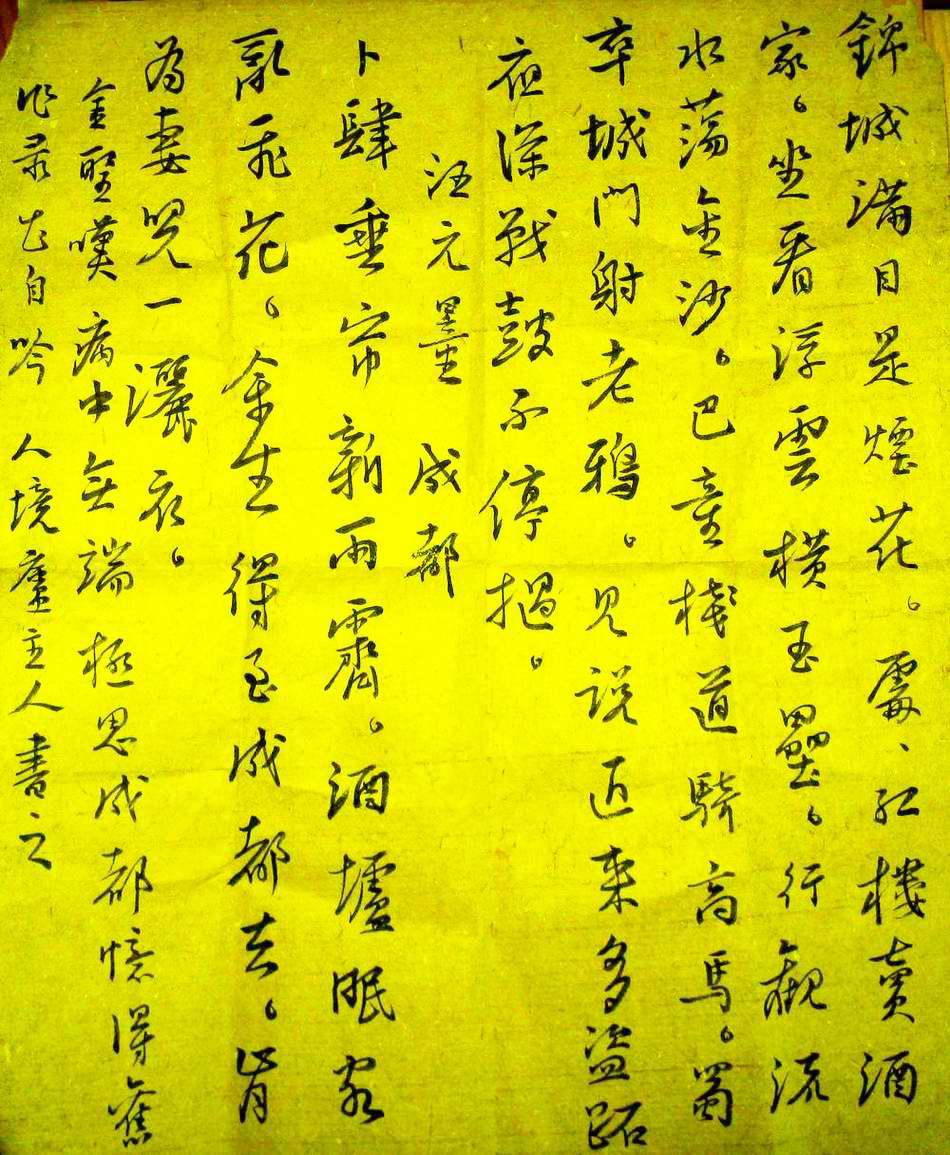 錦城滿目是煙花。處、紅樓賣酒
家。坐看浮雲橫玉壘。行觀流
水蕩金沙。巴童棧道騎高馬。蜀
卒城門射老鴉。見説近來多盜跖
夜深戰鼓不停撾。
汪元量 成都
卜肆垂帘新雨霽。酒壚眠客
亂飛花。余生得至成都去。肯
為妻兒一灑衣。
金聖嘆病中無端極思成都憶得舊
作录出自吟 人境廬主人書之